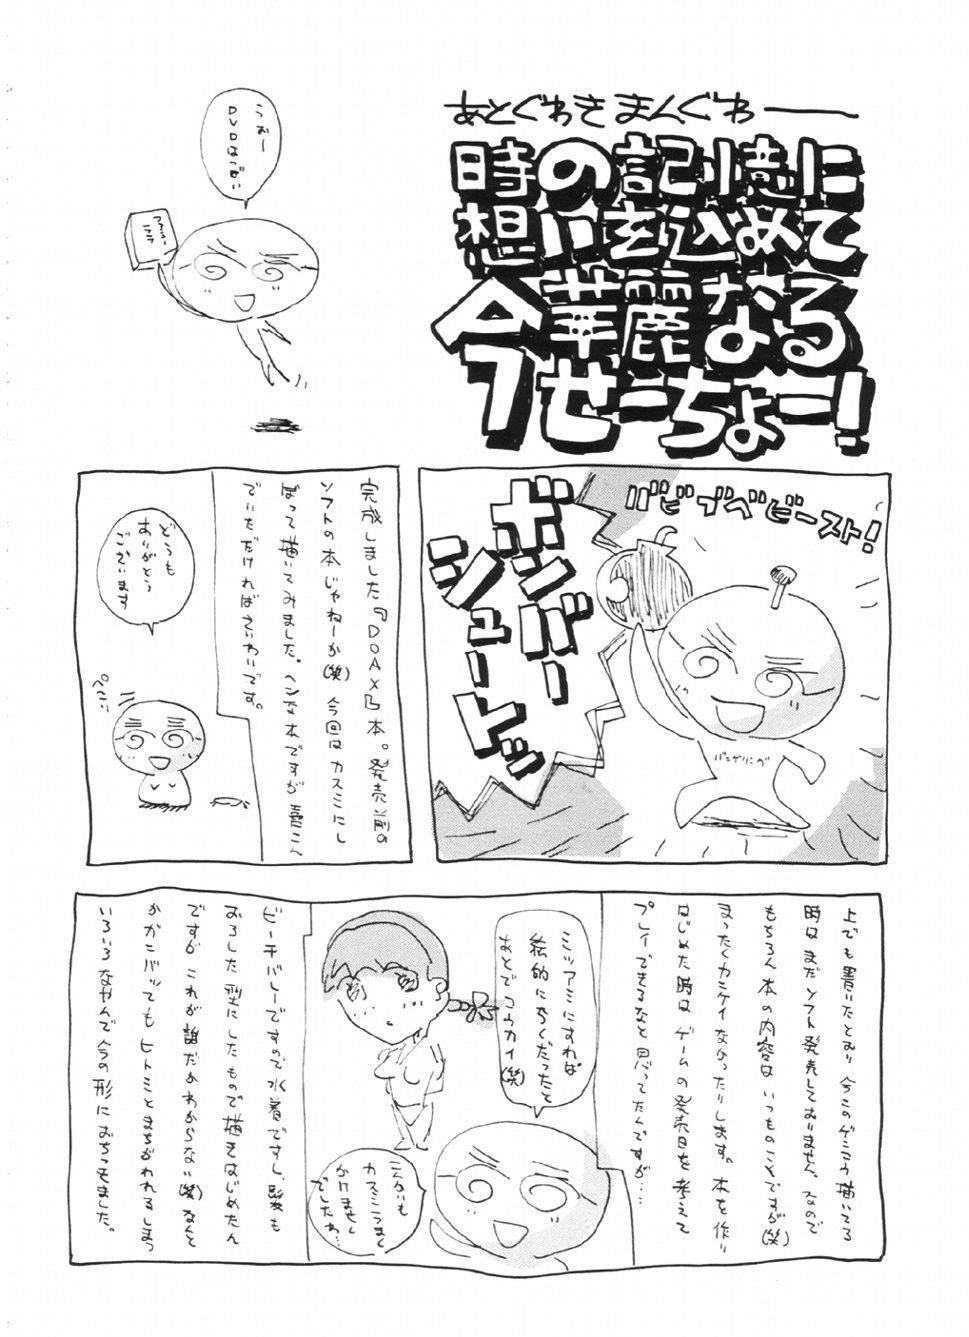 あとぐわきまんぐわ――
時の記憶に
想いを込めて
今華麗なる
ぜーちょー!
うおー
DVDはすごい
バビブベビースト!
ボンバー
シュートッ
バンゲリング
完成しました『DOAX』本。発売前の
ソフトの本じゃねーか(笑) 今回はカスミにし
ぼって描いてみました。ヘンな本ですが 喜こん
でいただければさいわいです。
どうも
ありがとう
ございます
ぺこ
上でも書いたとおり 今このゲンコウ描いてる
時は まだ ソフト発売しておりません。なので
もちろん 本の内容は いつものことですが(笑)
まったくカンケイ なかったりします。本を作り
はじめた時は ゲームの発売日を考えて
プレイできるなと思ってたんですが…
ミツアミにすれば
絵的に らくだったと
あとで コウカイ(笑)
こんかいも
カスミうまく
かけません
でしたわ…
ビーチバレーですので 水着ですし、髪も
おろした型にしたもので 描きはじめたん
ですが これが誰だかわからない(笑) なんと
かガンバッても ヒトミとまちがわれるしまつ
いろいろなやんで 今の形におちつきました。